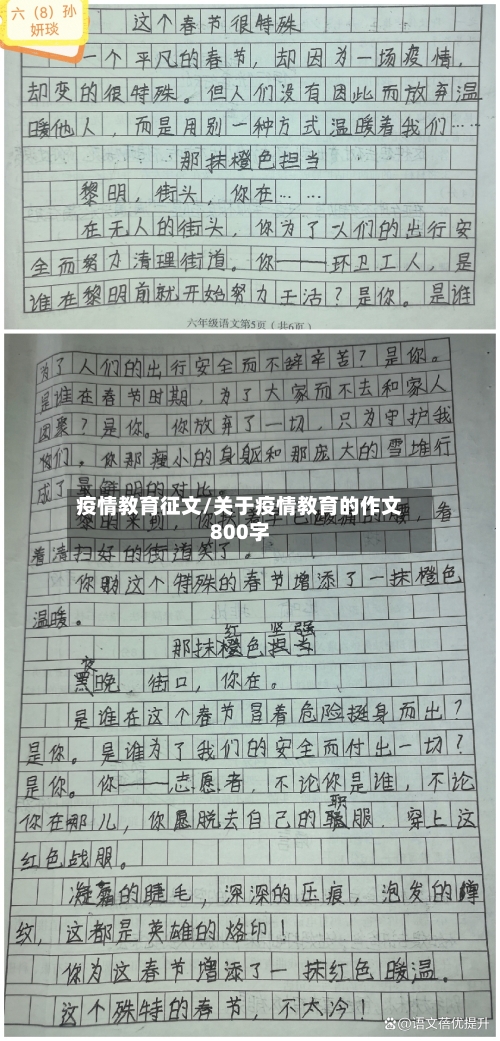 六（8）孙
妍琰
这个春节很特殊
一个平凡的春节，却因为一场疫情，
却变的很特殊。但人们没有因此而放弃温
暖他人，而是用别一种方式温暖着我们……
那抹橙色担当
黎明，街头，你在……
在无人的街头，你为了人们的出行安
全而努力清理街道。你——环卫工人，是
谁在黎明前就开始努力干活？是你。是谁
六年级语文第5页（共6页）
为了人们的出行安全而不辞辛苦？是你。
是谁在春节时期，为了大家而不去和家人
团聚？是你。你放弃了一切，只为守护我
们。你那瘦小的身躯和那庞大的雪堆行
成了最鲜明的对比。
疫情教育征文/关于疫情教育的作文
800字
黎明来到，你 腰，看
着清扫好的街道笑了。
你助这个特殊的春节增添了一抹橙色
温暖。
那抹红色坚强
夜晚，街口，你在。
是谁在这个春节冒着危险挺身而出？
是你。是谁为了我们的安全而付出一切？
是你。你——志愿者，不论你是谁，不论
你在哪儿，你愿脱去自己的职服，穿上这
红色战服。
凝霜的睫毛，深深的压痕，泡发的
纹，这都是英雄的烙印！
你为这春节增添了一抹红色暖温。
这个殊特的春节，不太冷！
@语文蓓优提升